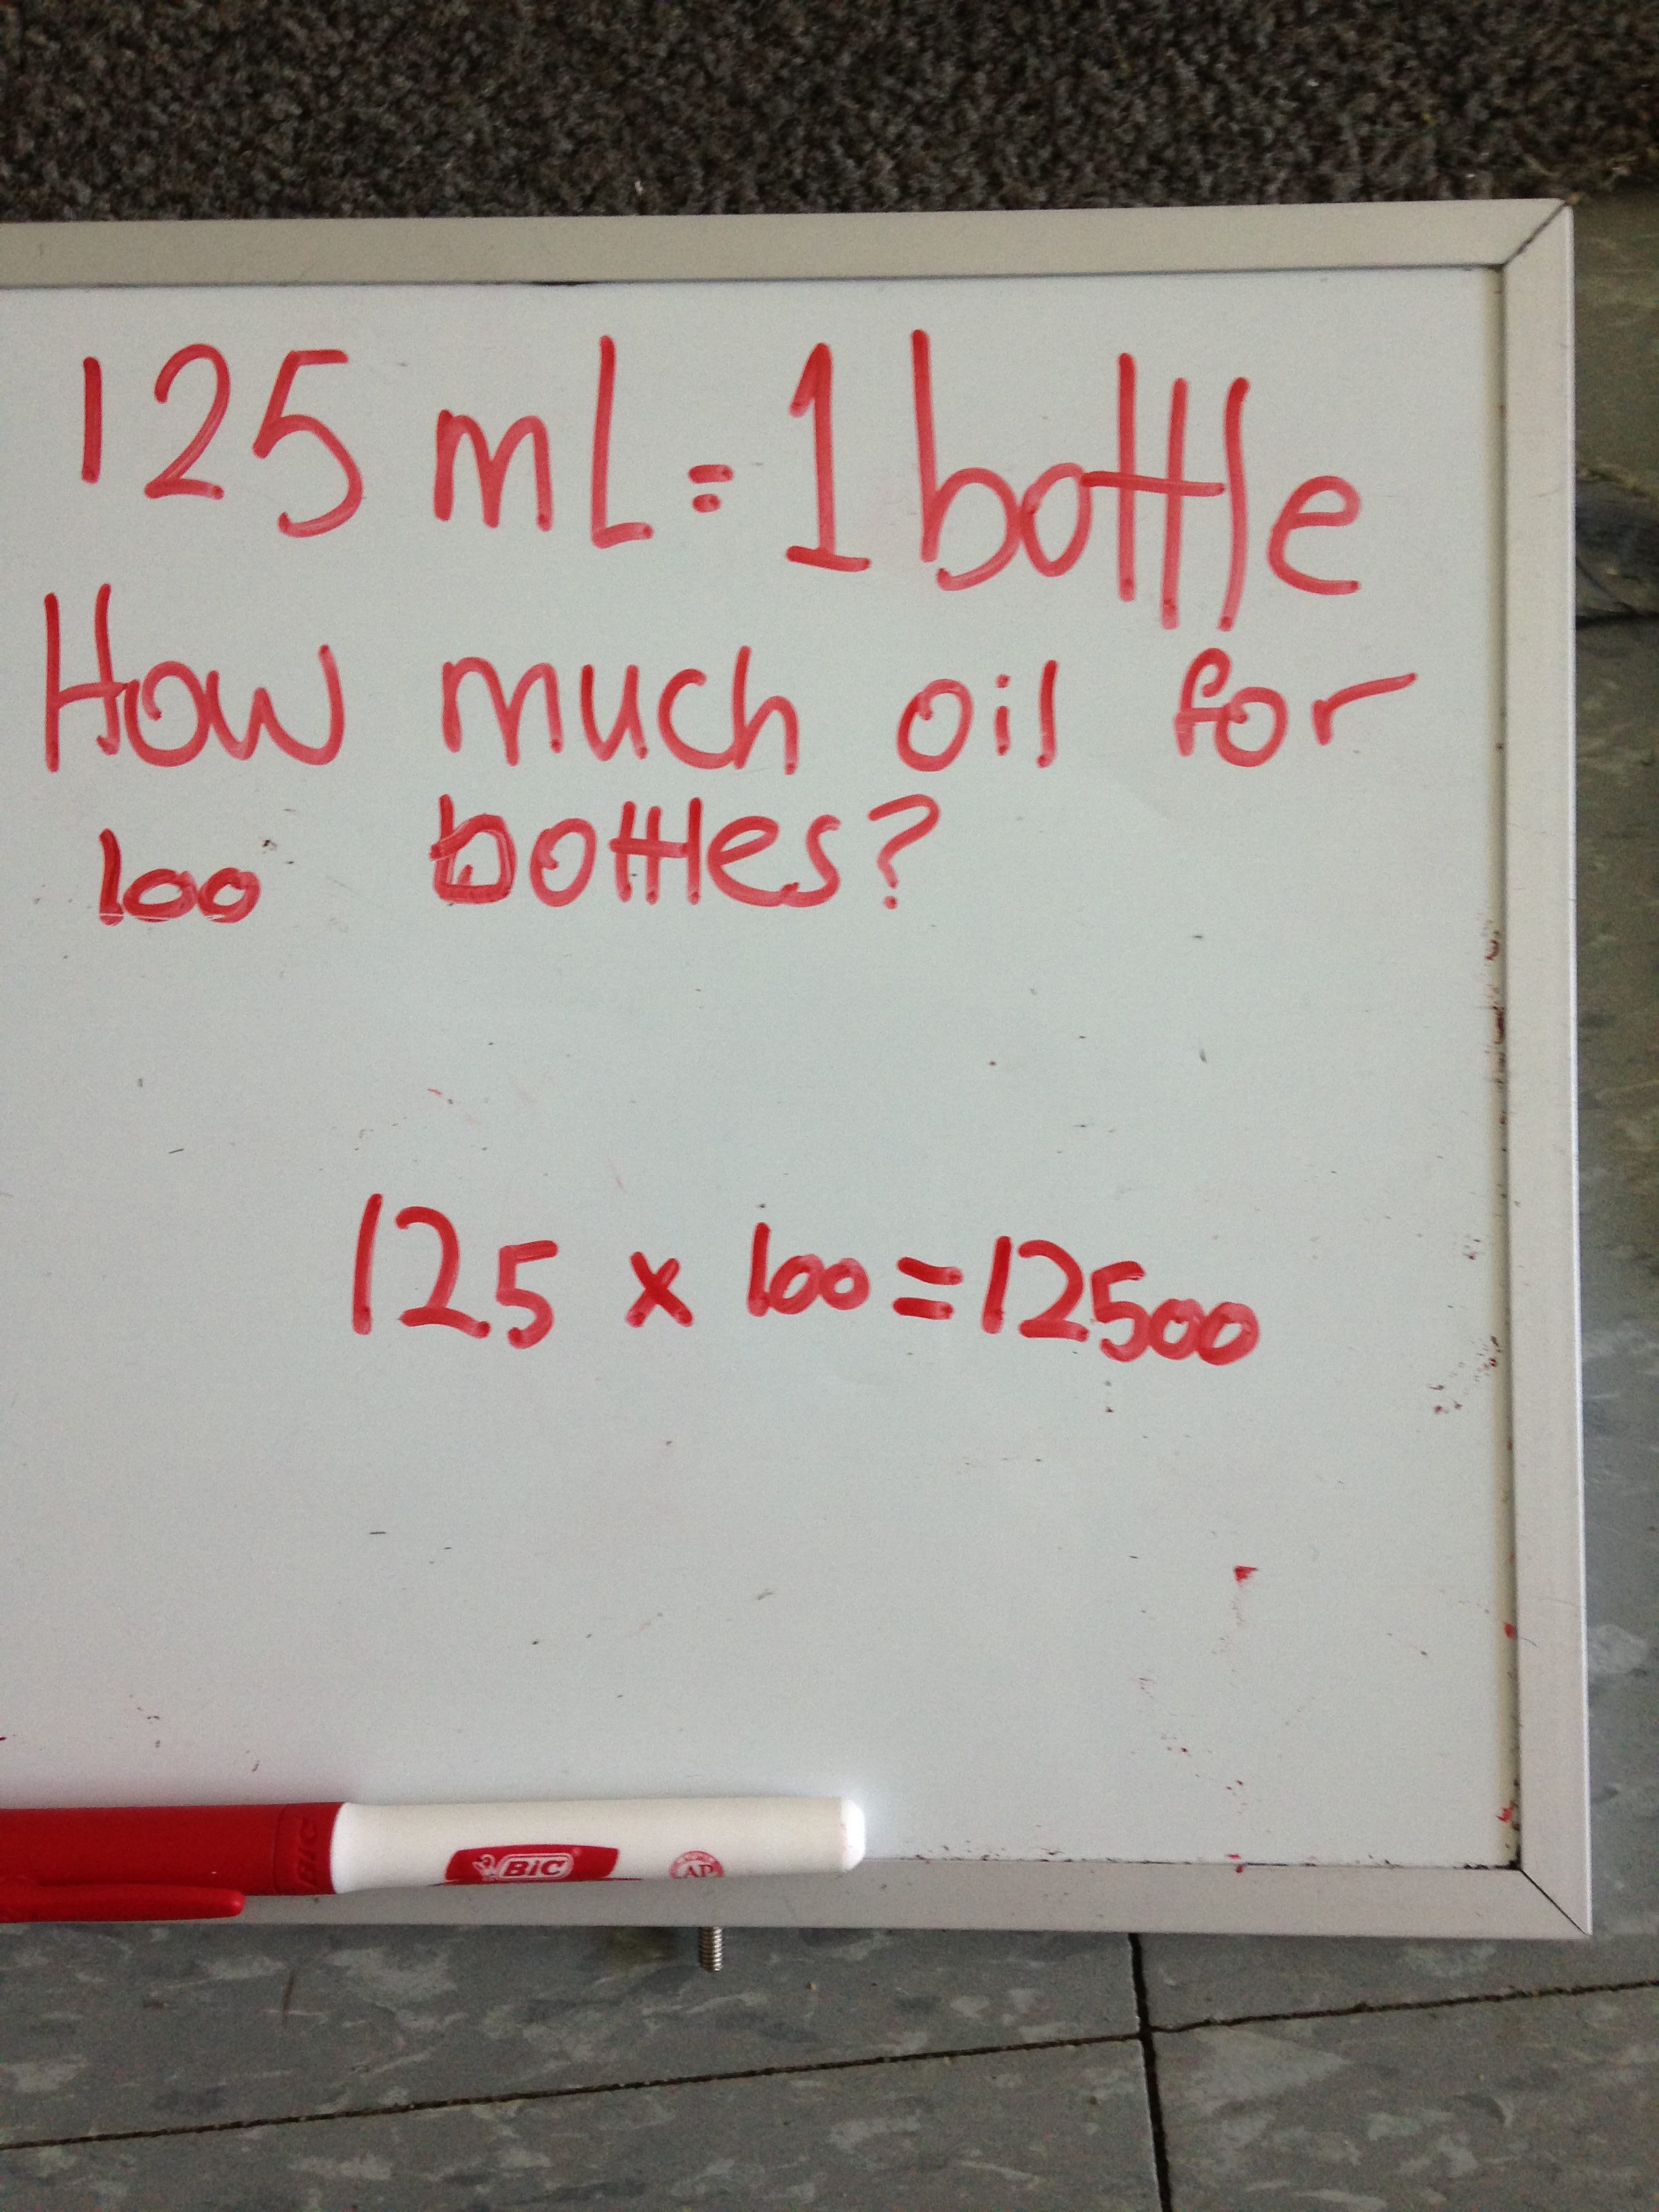 125 mL = 1 bottle
How much oil for
100 bottles?
125 x 100 = 12500
BIC
BiC
AP